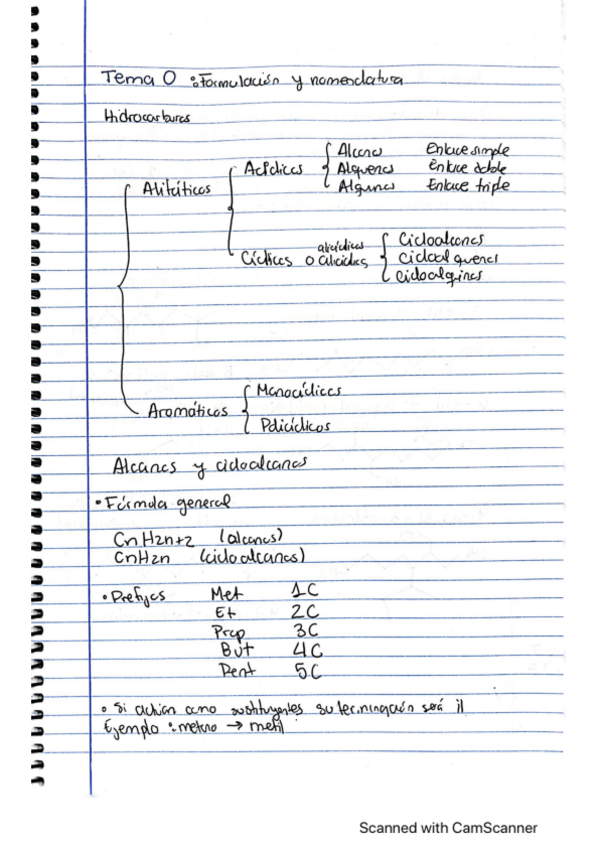 Tema 0 : Formulación y nomenclatura
Hidrocarburos
Alifáticos
Acíclicos
Alcanos Enlace simple
Alquenos Enlace doble
Alquinos Enlace triple
Cíclicos o alicíclicos
Cicloalcanos
cicloalquenos
cicloalquinos
Aromáticos
Monocíclicos
Policíclicos
Alcanos y cicloalcanos
• Fórmula general
CnH2n+2 (alcanos)
CnH2n (cicloalcanos)
• Prefijos Met 1C
Et 2C
Prop 3C
But 4C
Pent 5C
• Si actúan como sustituyentes su terminación será il
Ejemplo : metano → metil
Scanned with CamScanner